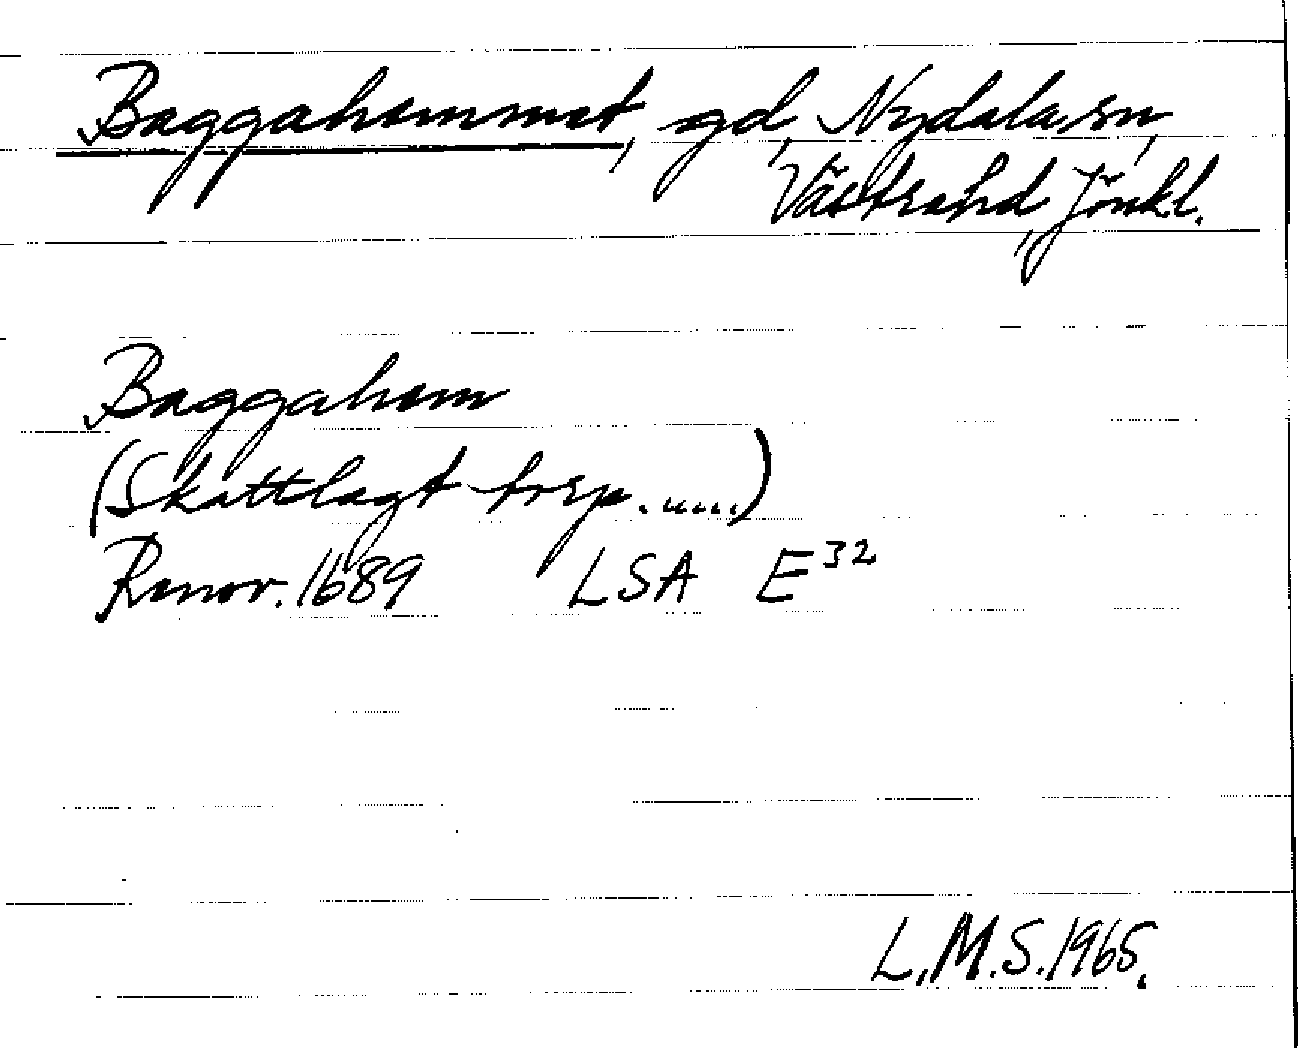 Baggahemmet, gd, Nydala sn,
Västra hd, Jönk l.
Baggahem
(Skattlagt trsp. .....)
Renov. 1689 LSA E 32
L.M.S. 1965.